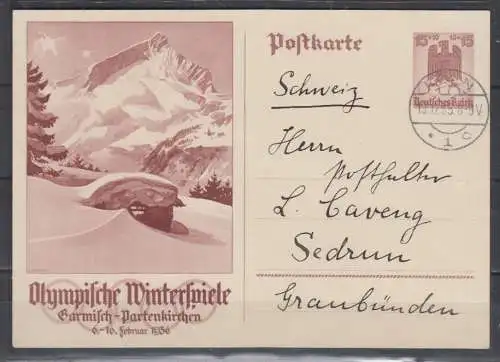 Postkarte
15+10 10+15
Deutsches Reich
Schweiz
Herrn
Posthalter
L. Caveng
Sedrun
Graubünden
Olympische Winterspiele
Garmisch-Partenkirchen
6.-16. Februar 1936